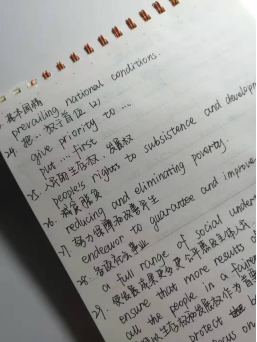 基本国情
prevailing national conditions.
24. 把…放于首位
give priority to ...
put .... first
25. 人民的生存权、发展权
peoples rights to subsistence and develop
26. 减贫脱贫
reducing and eliminating poverty.
27. 努力保障和改善民生
endeavor to guarantee and improve
28. 各项社会事业
a full range of social under
29.
ensure that more results o
all the people in a fairer
生存权和发展权作为首
protect be
ocus on